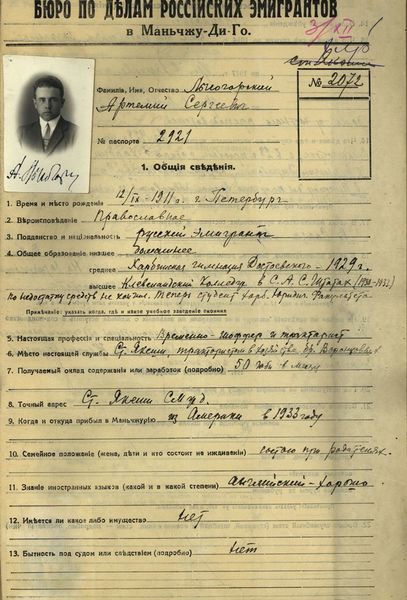 БЮРО ПО ДѢЛАМ РОССІЙСКИХ ЭМИГРАНТОВ
в Маньчжу-Ди-Го.
3/XII
№ 2072
Фамилія, Имя, Отчество Лысогорскій
Артемій Сергѣевич
№ паспорта 2921
1. Общія свѣдѣнія.
1. Время и мѣсто рожденія 12/IX - 1911 г. г. Петербург
2. Вѣроисповѣданіе Православное
3. Подданство и національность русскій эмигрант
4. Общее образованіе низшее домашнее
среднее Харбинская гимназія Достоевского - 1929 г.
высшее колледж в С.А.С.Штатах (1930-1932)
по недостатку средств не кончил. Теперь студент Харб. Юридич. Факультета
Примѣчаніе: указать когда, гдѣ и какое учебное заведеніе окончил
5. Настоящая профессія и спеціальность Временно - шоффер и тракторист
6. Мѣсто настоящей службы Ст. Якеши, трактористом в хозяйствѣ бр. Воронцовых
7. Получаемый оклад содержанія или заработок (подробно) 50 в мѣсяц
8. Точный адрес Ст. Якеши
9. Когда и откуда прибыл в Маньчжурію из Америки в 1933 году
10. Семейное положеніе (жена, дѣти и кто состоит на иждивеніи) состою при родителях.
11. Знаніе иностранных языков (какой и в какой степени) Англійскій - хорошо
12. Имѣется ли какое либо имущество Нет
13. Бытность под судом или слѣдствіем (подробно) Нет